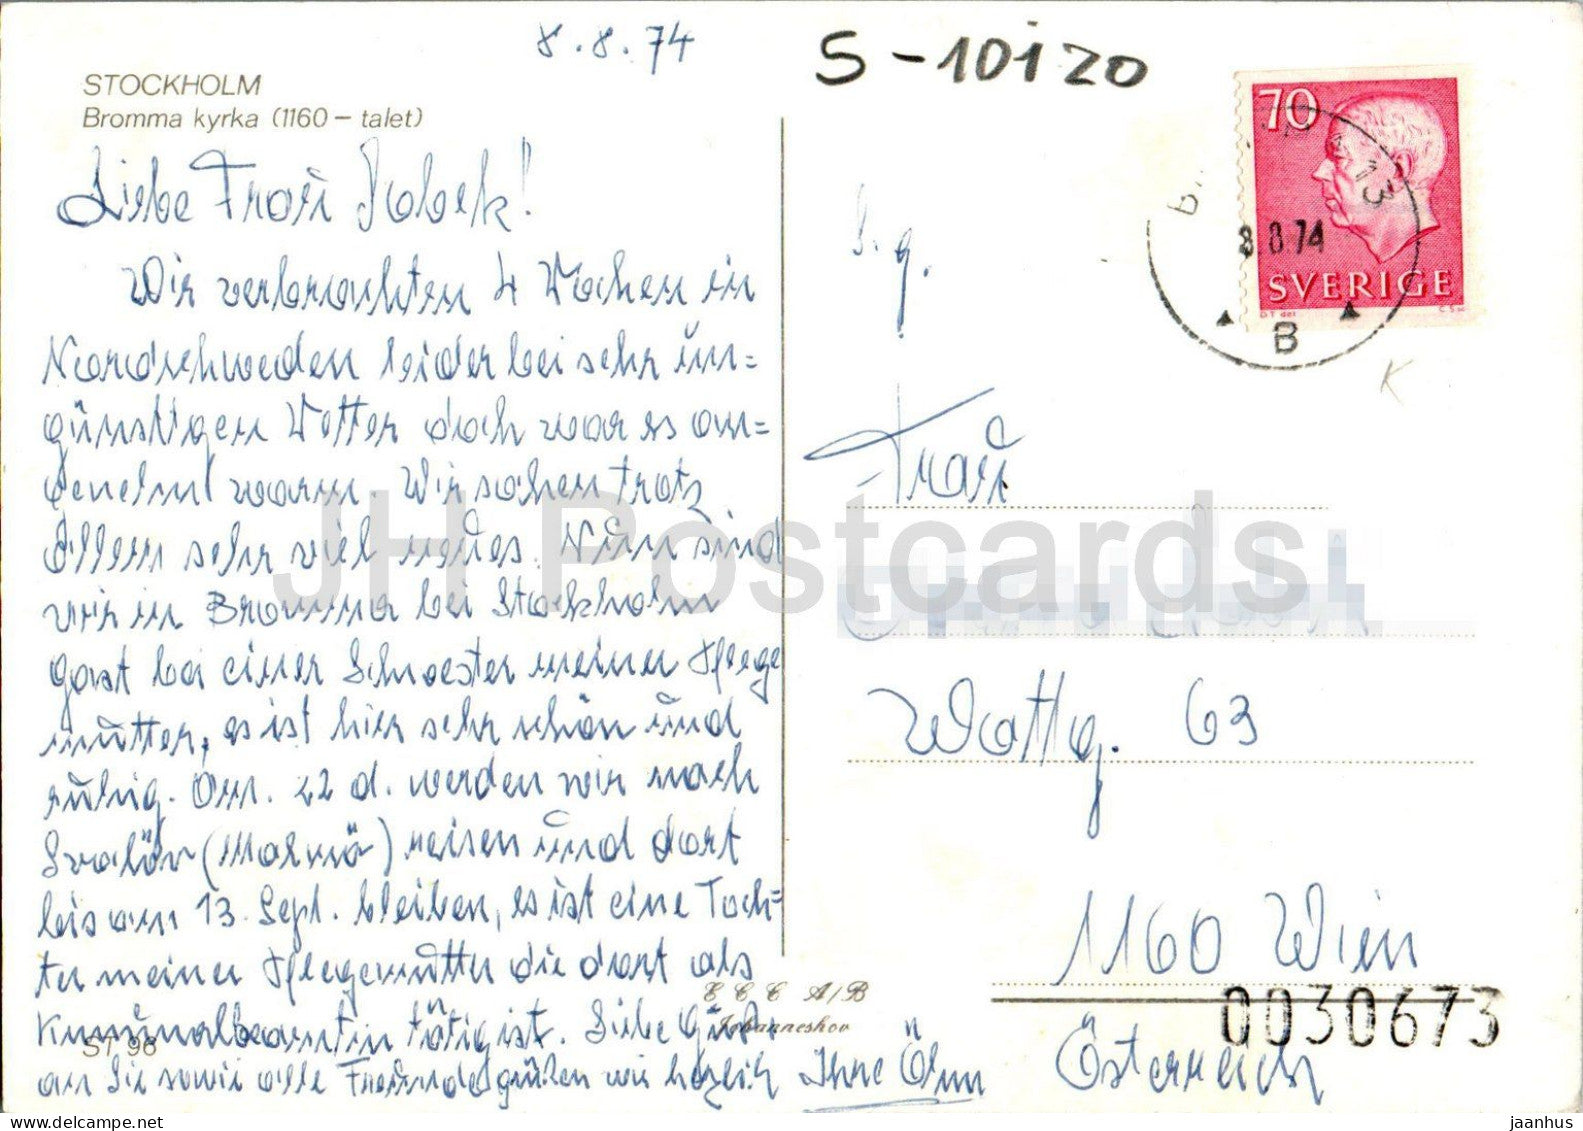 8.8.74
S-10120
STOCKHOLM
Bromma kyrka (1160 – talet)
70
SVERIGE
D.T del
C S sc
13
8.8.74
B
K
Liebe Frau Sobek!
Wir verbrachten 4 Wochen in
Nordschweden leider bei sehr un=
günstigen Wetter doch war es an=
genehm warm. Wir sahen trotz
Allem sehr viel neues. Nun sind
wir in Bromma bei Stockholm
Gast bei einer Schwester meiner Pflege
mutter, es ist hier sehr schön und
ruhig. Am. 22 d. werden wir nach
Svalöv (Malmö) reisen und dort
bis am 13. Sept. bleiben, es ist eine Toch=
ter meiner Pflegemutter die dort als
Kommunalbeamtin tätig ist. Liebe Grüße
an Sie sowie alle Freunde grüßen wir herzlich Ihre
S. g.
Frau
Wattg. 63
1160 Wien
Österreich
E C C A/B
Johanneshov
ST 98
0030673
JH Postcards
https://www.hippostcard.com/store/jaanhus